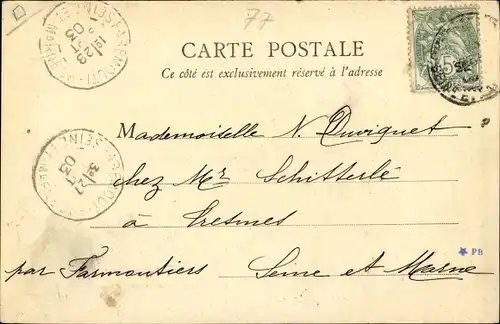 77
CARTE POSTALE
Ce côté est exclusivement réservé à l'adresse
Mademoiselle N. Duviquet
chez Mr Schitterlé
à Tresmes
par Farmoutiers Seine et Marne
PB